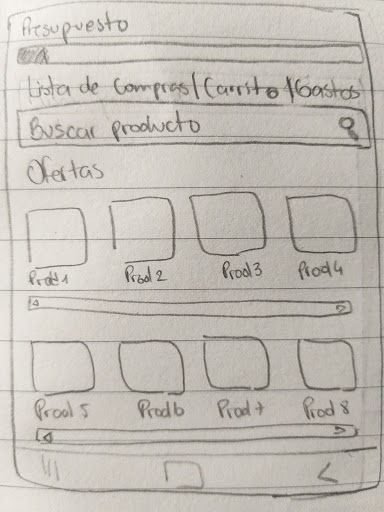 Presupuesto
Lista de Compras/Carrito/Gastos
Buscar producto
Ofertas
Prod 1 Prod 2 Prod 3 Prod 4
Prod 5 Prod 6 Prod 7 Prod 8